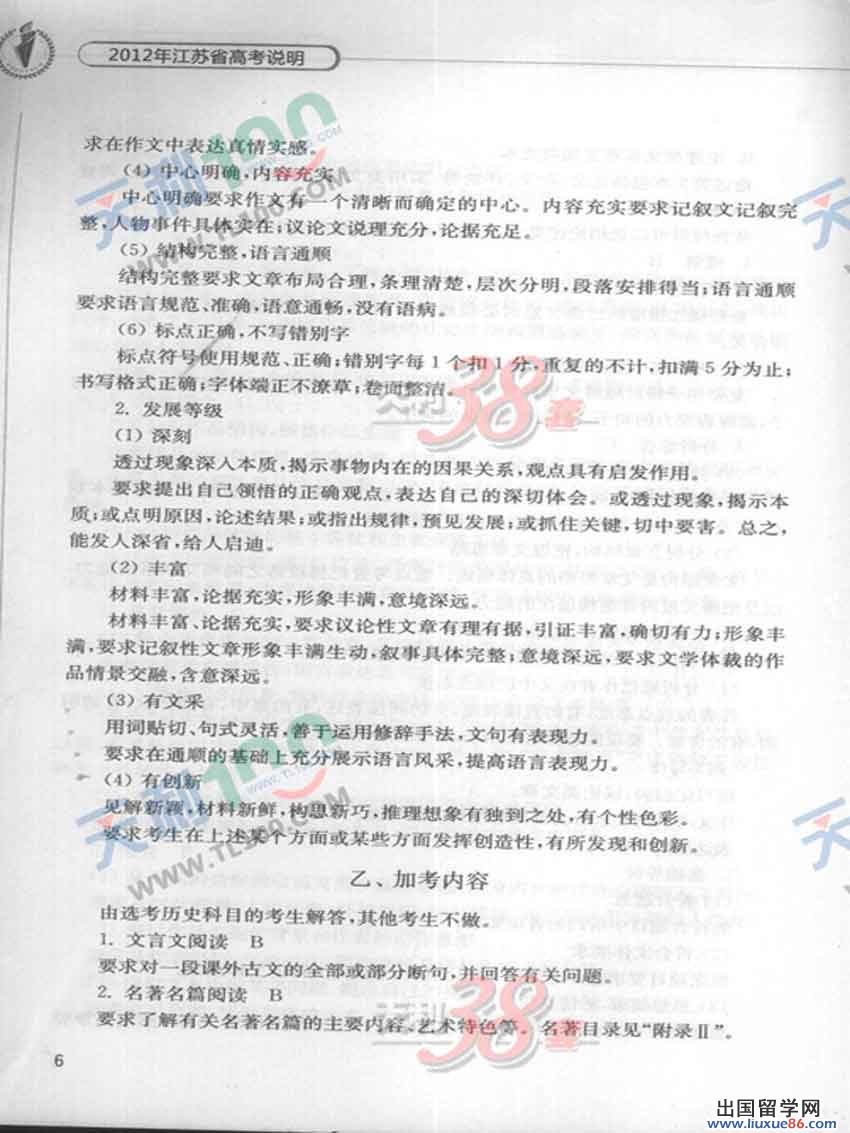 2012年江苏省高考说明
求在作文中表达真情实感。
(4) 中心明确,内容充实
中心明确要求作文有一个清晰而确定的中心。内容充实要求记叙文记叙完
整,人物事件具体实在;议论文说理充分,论据充足。
(5) 结构完整,语言通顺
结构完整要求文章布局合理,条理清楚,层次分明,段落安排得当;语言通顺
要求语言规范、准确,语意通畅,没有语病。
(6) 标点正确,不写错别字
标点符号使用规范、正确;错别字每1个扣1分,重复的不计,扣满5分为止;
书写格式正确;字体端正不潦草;卷面整洁。
2. 发展等级
(1) 深刻
透过现象深入本质,揭示事物内在的因果关系,观点具有启发作用。
要求提出自己领悟的正确观点,表达自己的深切体会。或透过现象,揭示本
质;或点明原因,论述结果;或指出规律,预见发展;或抓住关键,切中要害。总之,
能发人深省,给人启迪。
(2) 丰富
材料丰富,论据充实,形象丰满,意境深远。
材料丰富、论据充实,要求议论性文章有理有据,引证丰富,确切有力;形象丰
满,要求记叙性文章形象丰满生动,叙事具体完整;意境深远,要求文学体裁的作
品情景交融,含意深远。
(3) 有文采
用词贴切、句式灵活,善于运用修辞手法,文句有表现力。
要求在通顺的基础上充分展示语言风采,提高语言表现力。
(4) 有创新
见解新颖,材料新鲜,构思新巧,推理想象有独到之处,有个性色彩。
要求考生在上述某个方面或某些方面发挥创造性,有所发现和创新。
乙、加考内容
由选考历史科目的考生解答,其他考生不做。
1. 文言文阅读 B
要求对一段课外古文的全部或部分断句,并回答有关问题。
2. 名著名篇阅读 B
要求了解有关名著名篇的主要内容、艺术特色等。名著目录见“附录Ⅱ”。
6
天利100
WWW.TL100.COM
天利38套
天利100
WWW.TL100.COM
天利38套
出国留学网
www.liuxue86.com